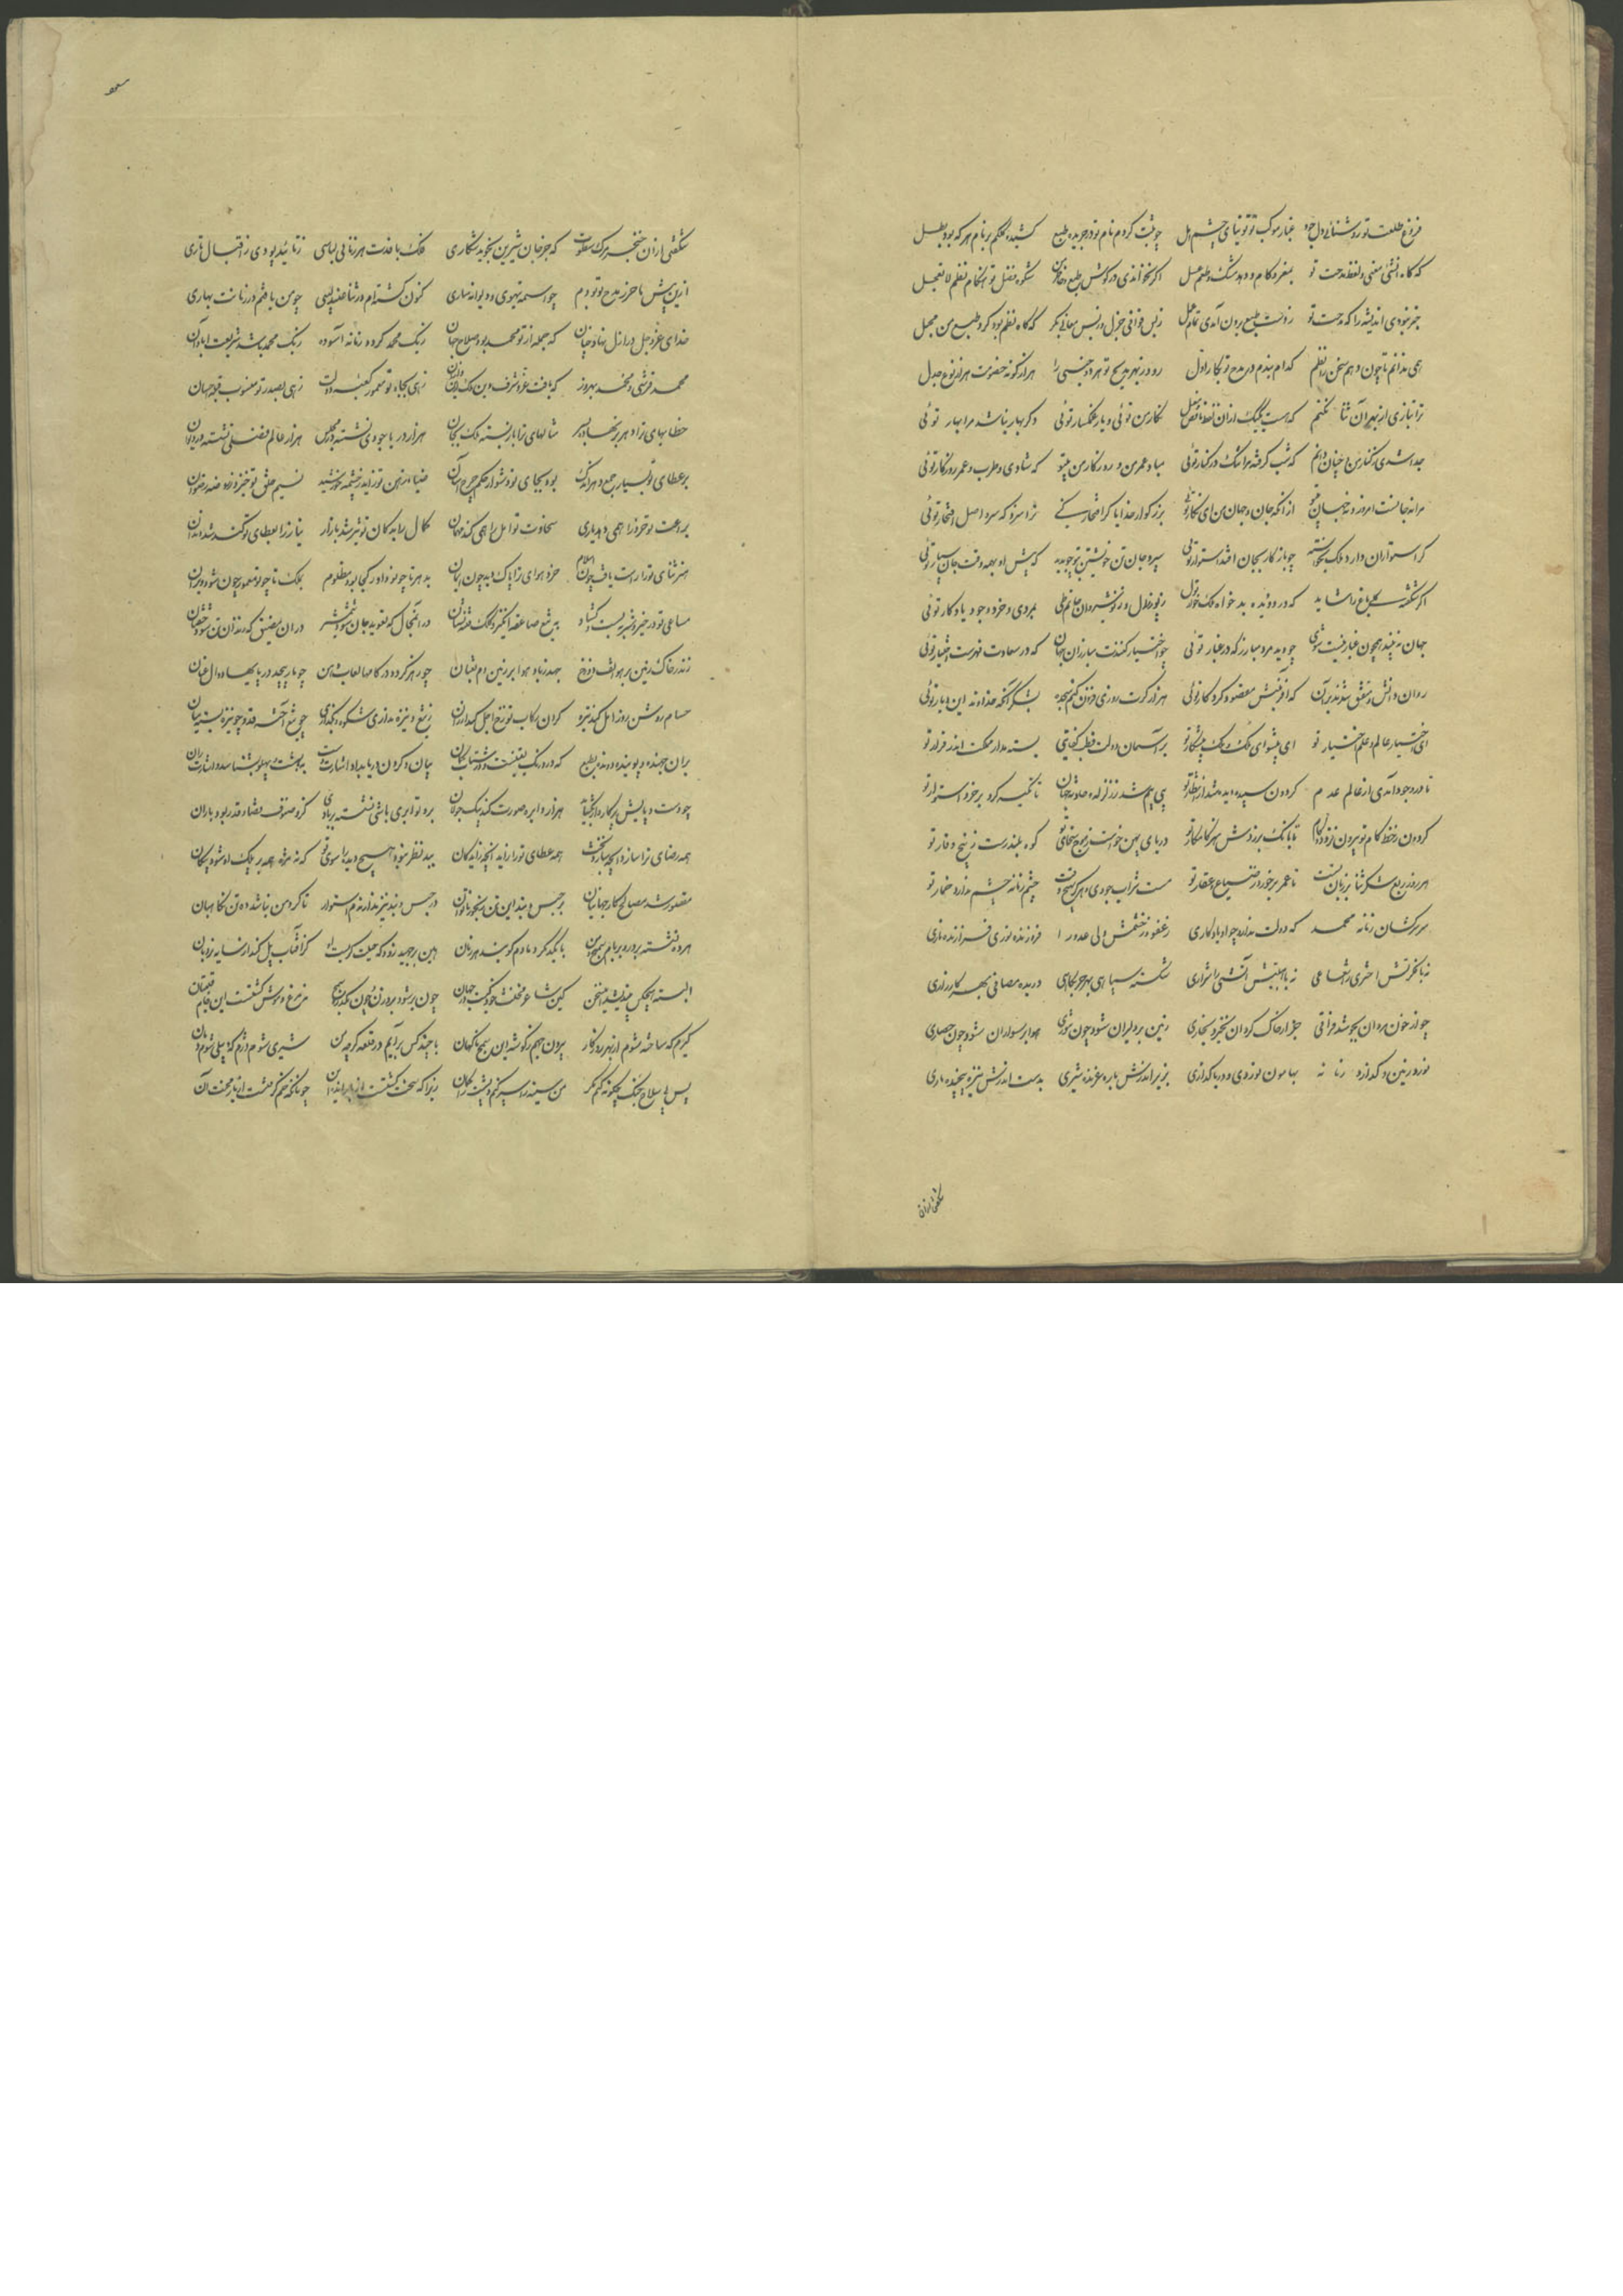 فروغ طلعت تو روشنائی دل جود غبار موکب تو توتیای چشم امل چو ثبت کردم نام تو در جریده طبع کشیده حکم بر نام هر که بود بطل
که گاه انشی معنی و لفظ مدحت تو بمغز و کام دهد مشک و طعم عسل اگر نخواندی در گوش طبع و خاطر من شکوه فضل تو هنگام نظم لا تعجل
خبر نبودی اندیشه را که مدحت تو ز دست طبع برون آمدی تمام عمل ز بس قوافی جزل و ز بس معانی بکر که گاه نظم بود گرد طبع من مجمل
همی ندانم تا چون دهم سخن را نظم کدام بندم در مدح تو بکار اول رود ز بهر مدیح تو هر دو جنسی را هزار گونه خصومت هزار نوع جدل
ترا نیازی از بهر آن ثنا نکنم که هست یکیک از آن لفظ نگار من توئی و یار غمگسار توئی دگر بهار نباشد مرا بهار توئی
جدا شدی ز کنار من و چنان دانم که شب گرفته مرا تنگ در کنار توئی مباد عمر من و روزگار من بیتو که شادی و طرب و عمر و روزگار توئی
از آنکه جان و جهان من ای نگار توئی بزرگوار خدایا کر افتخار کنی ترا سزد که سر و اصل افتخار توئی
سپرد جان تن خویشتن بتو چو بدید که پیش او بهمه وقت جان سپار توئی
اگر شکفته گل باغ را شاید که در دو دیده بدخواه ملک خار توئی بمردی و خرد و جود یادگار توئی
جهان نه بیند همچون غبار فتنت شوی چو دید مرد مبارز که در غبار توئی چو اختیار کنندت مبارزان جهان که در سعادت فهرست اختیار توئی
روان دانش که آفرینش مقصود کردگار توئی هزار کرت روزی فزون کنم سجده بشکر آنکه خداوند این دیار توئی
ای اختیار عالم و علم اختیار تو ای پیشوای ملک و ملک پیشکار تو بر آسمان دولت قطب کفایتی بسته مدار مملکت اندر قرار تو
تا در وجود آمدی از عالم عدم گردون سپید دیده شد از انتظار تو بی بیم شد ز زلزله حادثه جهان تا تکیه کرد بر خرد استوار تو
گردون ز خط کام تو بیرون نزد قدم تا بانک بر زدش سر کلک نگار تو دریای بهن خواست ز موج سخای تو کوه بلند رست ز بیخ وقار تو
هر روز ربع شکر ثنا بر زبان تست تا عمر برخورد ز ضیاع و عقار تو مست شراب جودی و هرگز بهیچ وقت چشم زمانه چشم ندارد خمار تو
سر سرکشان زمانه محمد که دولت ندارد چو او یادگاری ز عفو و ز خشمش ولی عدو را فروزنده نوری فرازنده ناری
نه با فکرتش اختری را شعاعی نه با هیبتش آتشی را شراری شکسته سپاهی بهر حربگاهی دریده مصافی بهر کارزاری
چو از خون مردان بجوشد فراتی جز از خاک گردان نخیزد بخاری زمین بر دلیران شود چون تنوری هوا بر سواران شود چون حصاری
نوردد زمین و گذارد زمانه بهامون نوردی و دریا گذاری بزیر اندرش باره غرنده شیری بدست اندرش نیزه پیچنده ماری
شگفتی ازان
شگفتی ازان خنجر مرگ سطوت که جز جان شیرین نجوید شکاری فلک بافدت هر زمانی لباسی ز تائید پودی ز اقبال تاری
ازین پیش تا حرز مدح تو بودم چو آسیمه بیهوی و دیوانه ساری کنون گشته‌ام در ثنا عندلیبی چو من یافتم در زمانت بهاری
خدای عز و جل در ازل نهاد چنان که جمله از تو محمد بود صلاح جهان ز یک محمد گردد زمانه آسوده ز یک محمد باشد شریعت آبادان
محمد قرشی و محمد بهروز که یافت عز و شرف دین و ملک ازین و ازان زهی بجاه تو معمور کعبه دولت زهی بصدر تو منسوب قبله احسان
خطابهای ترا دهر بر نهاده بسر مثالهای ترا باز بسته ملک بجان هزار دریا جودی نشسته در مجلس هزار عالم فضلی نشسته در دیوان
بر عطای تو بسیار جمع دهر اندک بود بجای تو دشوار حکم چرخ آسان ضیاء ذهن تو زاید ز چشمه خورشید نسیم خلق تو خیزد ز روضه رضوان
مروت تو خرد را همی دهد یاری سخاوت تو امل را همی کند مهمان کمال را به مکان تو تیز شد بازار نیاز را بعطای تو کند شد دندان
هنر ثنای تو را راست یافت چون اسلام خرد هوای ترا پاک دید چون ایمان بدهر تا چو تو داور کجا بود مظلوم بملک تا چو تو معمور چون شود ویران
مساعی تو در خیر و شر ببست و گشاد بتیغ صاعقه انگیز و کلک فتنه نشان در آن مجال که تعویذ جان شود شمشیر در آن مضیق که زندان تن شود خفتان
زند ز خاک زمین بر هوا تف دوزخ جهد ز باد هوا بر زمین دم ثعبان چو زهر گردد در کامها لعاب دهن چو مار پیچد در یالها دوال عنان
حسام روشن روز امل کند تیره گران رکاب تو نرخ اجل کند ارزان ز تیغ و نیزه نداری شکوه و نگذاری چو تیغ آخته قد و چو نیزه بسته میان
بران جهنده و پوینده و دونده بطبع که در درنگ یقینست و در شتاب گمان میان دو گردون دریا بداد اشارت
چو دست و پایش پرگار وار بگشاید هزار دایره صورت کند بیک جولان برو تو ابری باشی نشسته بر بادی کزو صنوف قضا و قدر بود باران
همه رضای ترا سازد آنچه سازد بخت همه عطای تو را زاید آنچه زاید کان بدیده نظر نبود هیچ دیده را سوی تو که نه مژه همه بر پلک او شود پیکان
مقصور شد مصالح کار جهانیان بر حبس و بند این تن رنجور ناتوان در حبس و بند نیز ندارندم استوار تا گرد من نباشد ده تن نگاهبان
هر ده نشسته بر در و بر بام سمج من با یکدگر دمادم گویند هر زمان هین برجهید زود که حیلت گریست او کز آفتاب پل کند از سایه نردبان
البته هیچکس نیندیشد این سخن کین شاعر مخنث خود کیست در جهان چون برشود ز روزن و چون بگذرد ز سمج نه مرغ و موش گشتست این خام قلتبان
گیرم که ساخته شوم از بهر کارزار بیرون جهم ز گوشه این سمج ناگهان با چند کس برآیم در قلعه گرچه من شیری شوم دژم که و پیلی شوم دمان
پس بی سلاح جنگ چگونه کنم مگر من سینه را سپر کنم و پشت را کمان زیرا که سخت گشتست از رنج انده این چونانکه خم گرفتست از بار محنت آن